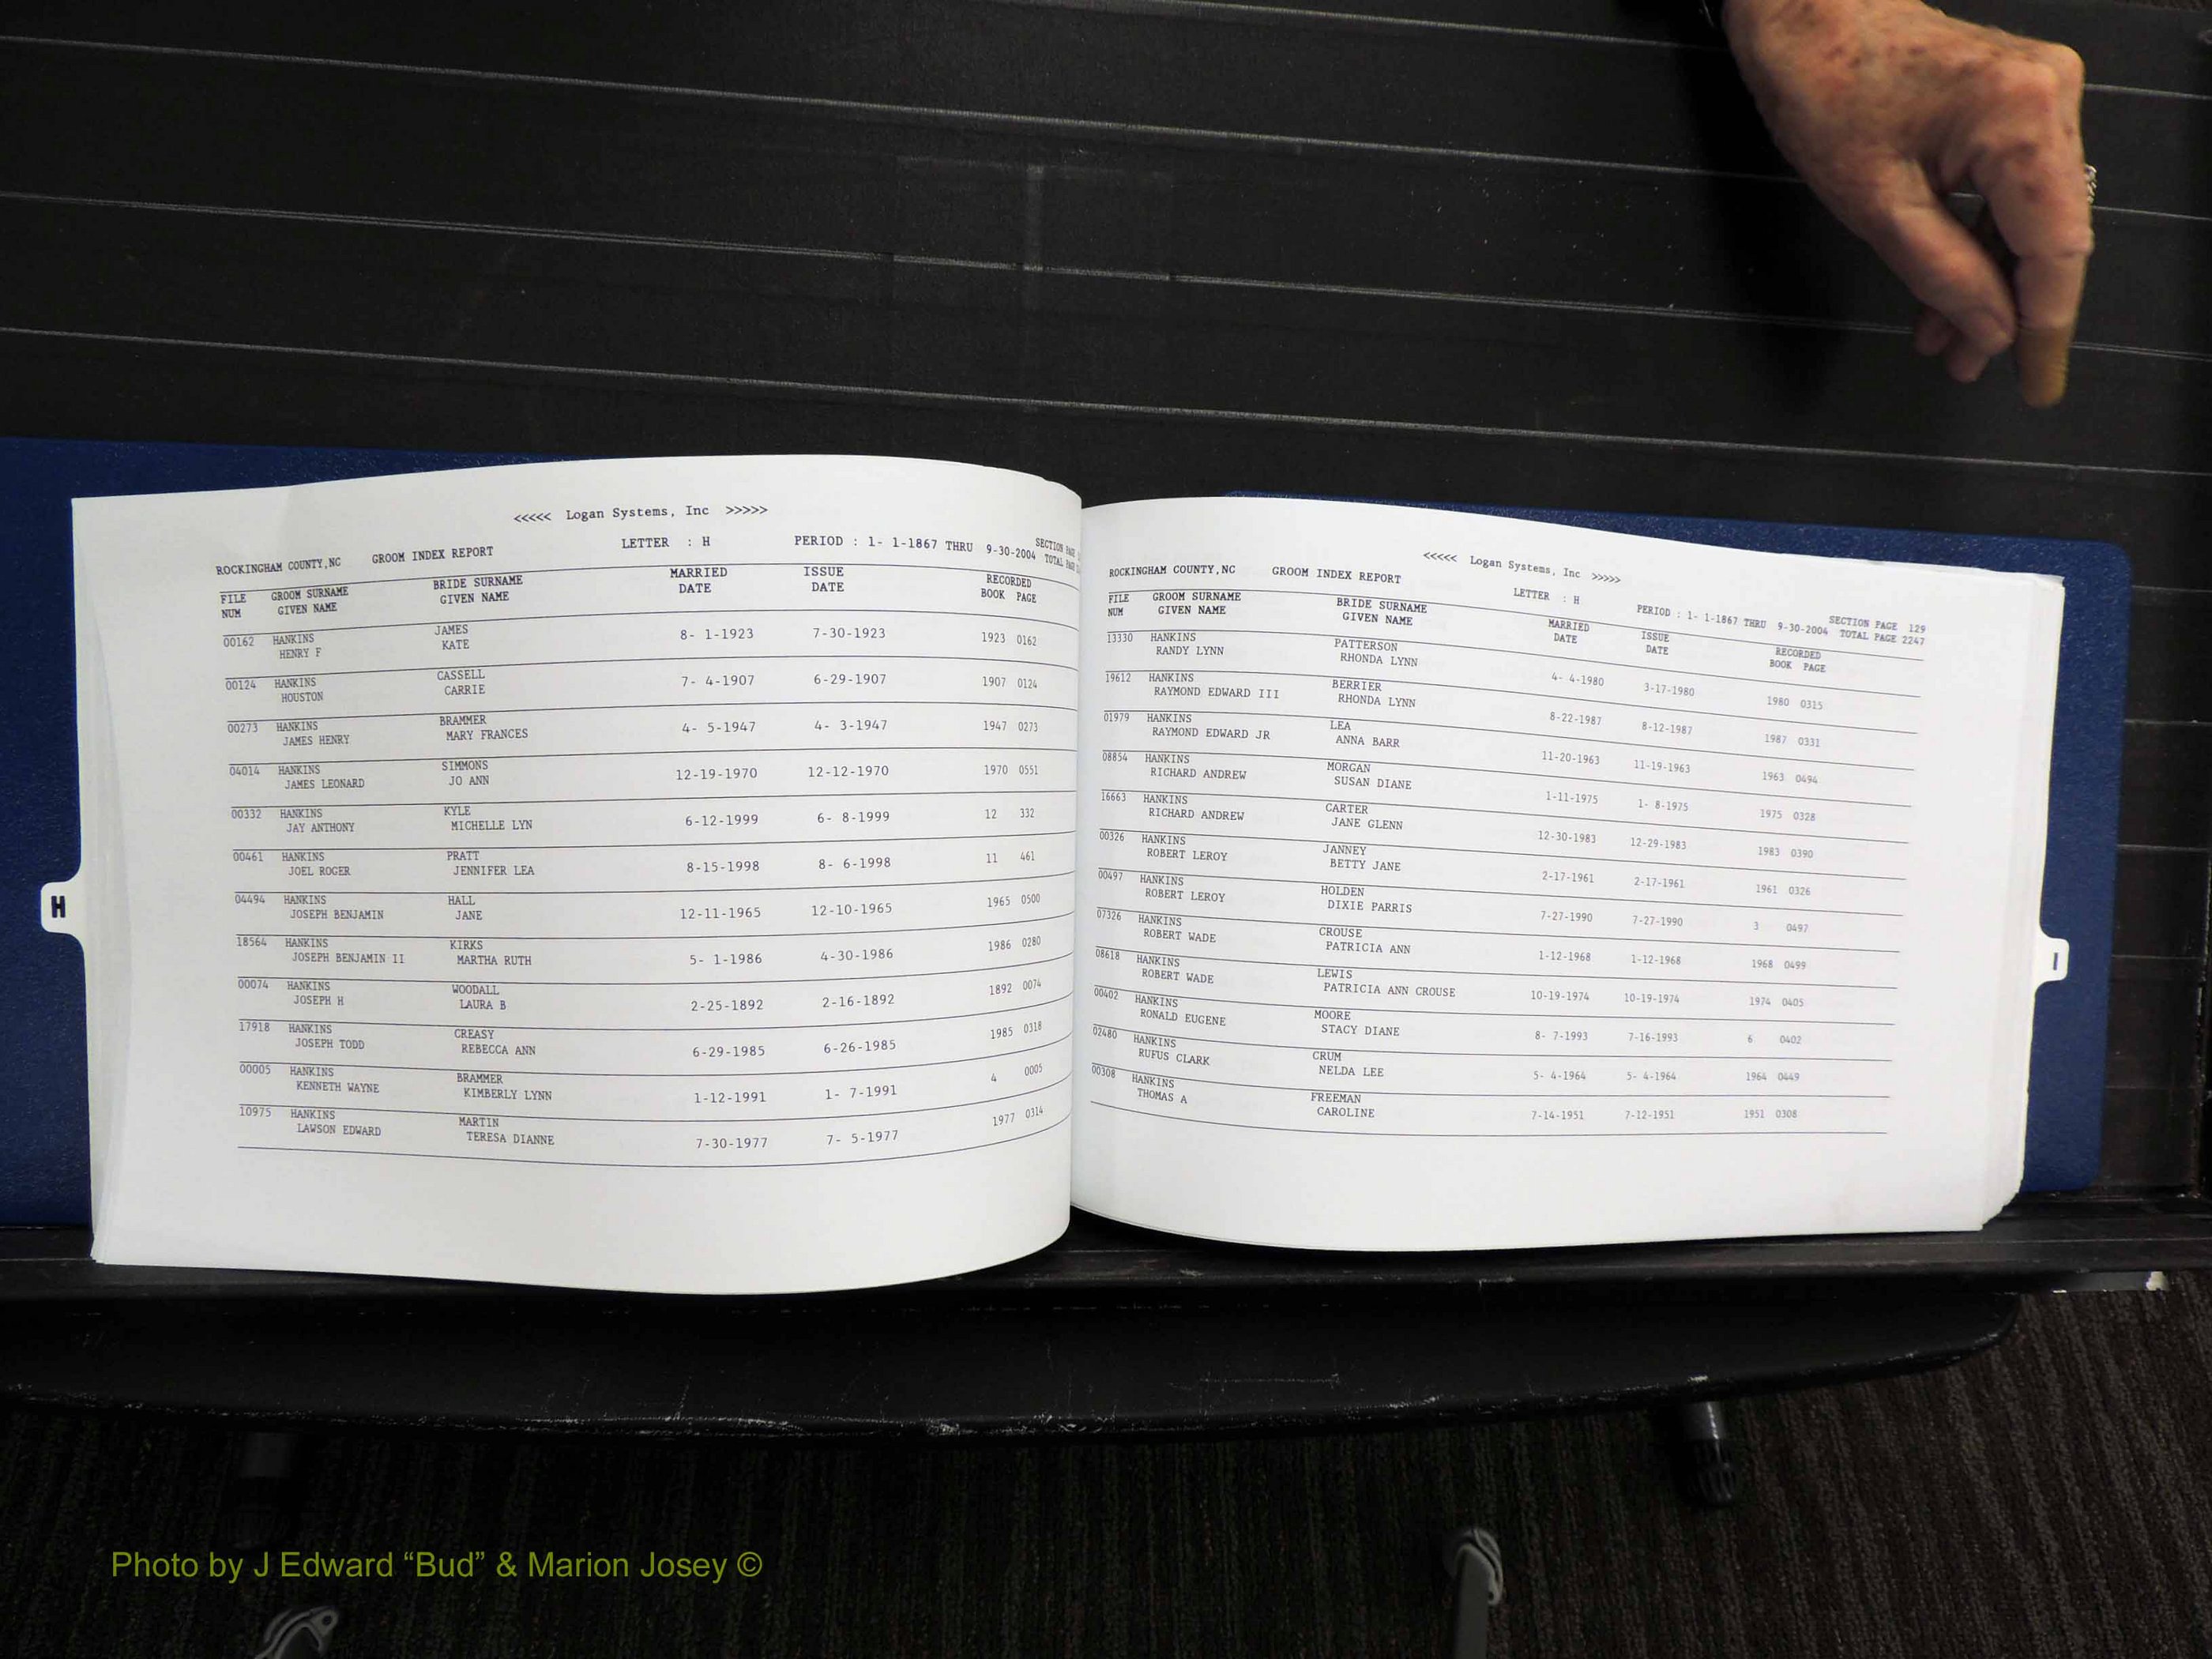 <<<<< Logan Systems, Inc >>>>>
ROCKINGHAM COUNTY,NC GROOM INDEX REPORT LETTER : H PERIOD : 1- 1-1867 THRU 9-30-2004 SECTION PAGE
TOTAL PAGE
FILE GROOM SURNAME BRIDE SURNAME MARRIED ISSUE RECORDED
NUM GIVEN NAME GIVEN NAME DATE DATE BOOK PAGE
00162 HANKINS JAMES 8- 1-1923 7-30-1923 1923 0162
HENRY F KATE
00124 HANKINS CASSELL 7- 4-1907 6-29-1907 1907 0124
HOUSTON CARRIE
00273 HANKINS BRAMMER 4- 5-1947 4- 3-1947 1947 0273
JAMES HENRY MARY FRANCES
04014 HANKINS SIMMONS 12-19-1970 12-12-1970 1970 0551
JAMES LEONARD JO ANN
00332 HANKINS KYLE 6-12-1999 6- 8-1999 12 332
JAY ANTHONY MICHELLE LYN
00461 HANKINS PRATT 8-15-1998 8- 6-1998 11 461
JOEL ROGER JENNIFER LEA
04494 HANKINS HALL 12-11-1965 12-10-1965 1965 0500
JOSEPH BENJAMIN JANE
18564 HANKINS KIRKS 5- 1-1986 4-30-1986 1986 0280
JOSEPH BENJAMIN II MARTHA RUTH
00074 HANKINS WOODALL 2-25-1892 2-16-1892 1892 0074
JOSEPH H LAURA B
17918 HANKINS CREASY 6-29-1985 6-26-1985 1985 0318
JOSEPH TODD REBECCA ANN
00005 HANKINS BRAMMER 1-12-1991 1- 7-1991 4 0005
KENNETH WAYNE KIMBERLY LYNN
10975 HANKINS MARTIN 7-30-1977 7- 5-1977 1977 0314
LAWSON EDWARD TERESA DIANNE
H
<<<<< Logan Systems, Inc >>>>>
ROCKINGHAM COUNTY,NC GROOM INDEX REPORT LETTER : H PERIOD : 1- 1-1867 THRU 9-30-2004 SECTION PAGE 129
TOTAL PAGE 2247
FILE GROOM SURNAME BRIDE SURNAME MARRIED ISSUE RECORDED
NUM GIVEN NAME GIVEN NAME DATE DATE BOOK PAGE
13330 HANKINS PATTERSON 4- 4-1980 3-17-1980 1980 0315
RANDY LYNN RHONDA LYNN
19612 HANKINS BERRIER 8-22-1987 8-12-1987 1987 0331
RAYMOND EDWARD III RHONDA LYNN
01979 HANKINS LEA 11-20-1963 11-19-1963 1963 0494
RAYMOND EDWARD JR ANNA BARR
08854 HANKINS MORGAN 1-11-1975 1- 8-1975 1975 0328
RICHARD ANDREW SUSAN DIANE
16663 HANKINS CARTER 12-30-1983 12-29-1983 1983 0390
RICHARD ANDREW JANE GLENN
00326 HANKINS JANNEY 2-17-1961 2-17-1961 1961 0326
ROBERT LEROY BETTY JANE
00497 HANKINS HOLDEN 7-27-1990 7-27-1990 3 0497
ROBERT LEROY DIXIE PARRIS
07326 HANKINS CROUSE 1-12-1968 1-12-1968 1968 0499
ROBERT WADE PATRICIA ANN
08618 HANKINS LEWIS 10-19-1974 10-19-1974 1974 0405
ROBERT WADE PATRICIA ANN CROUSE
00402 HANKINS MOORE 8- 7-1993 7-16-1993 6 0402
RONALD EUGENE STACY DIANE
02480 HANKINS CRUM 5- 4-1964 5- 4-1964 1964 0449
RUFUS CLARK NELDA LEE
00308 HANKINS FREEMAN 7-14-1951 7-12-1951 1951 0308
THOMAS A CAROLINE
I
Photo by J Edward “Bud” & Marion Josey ©